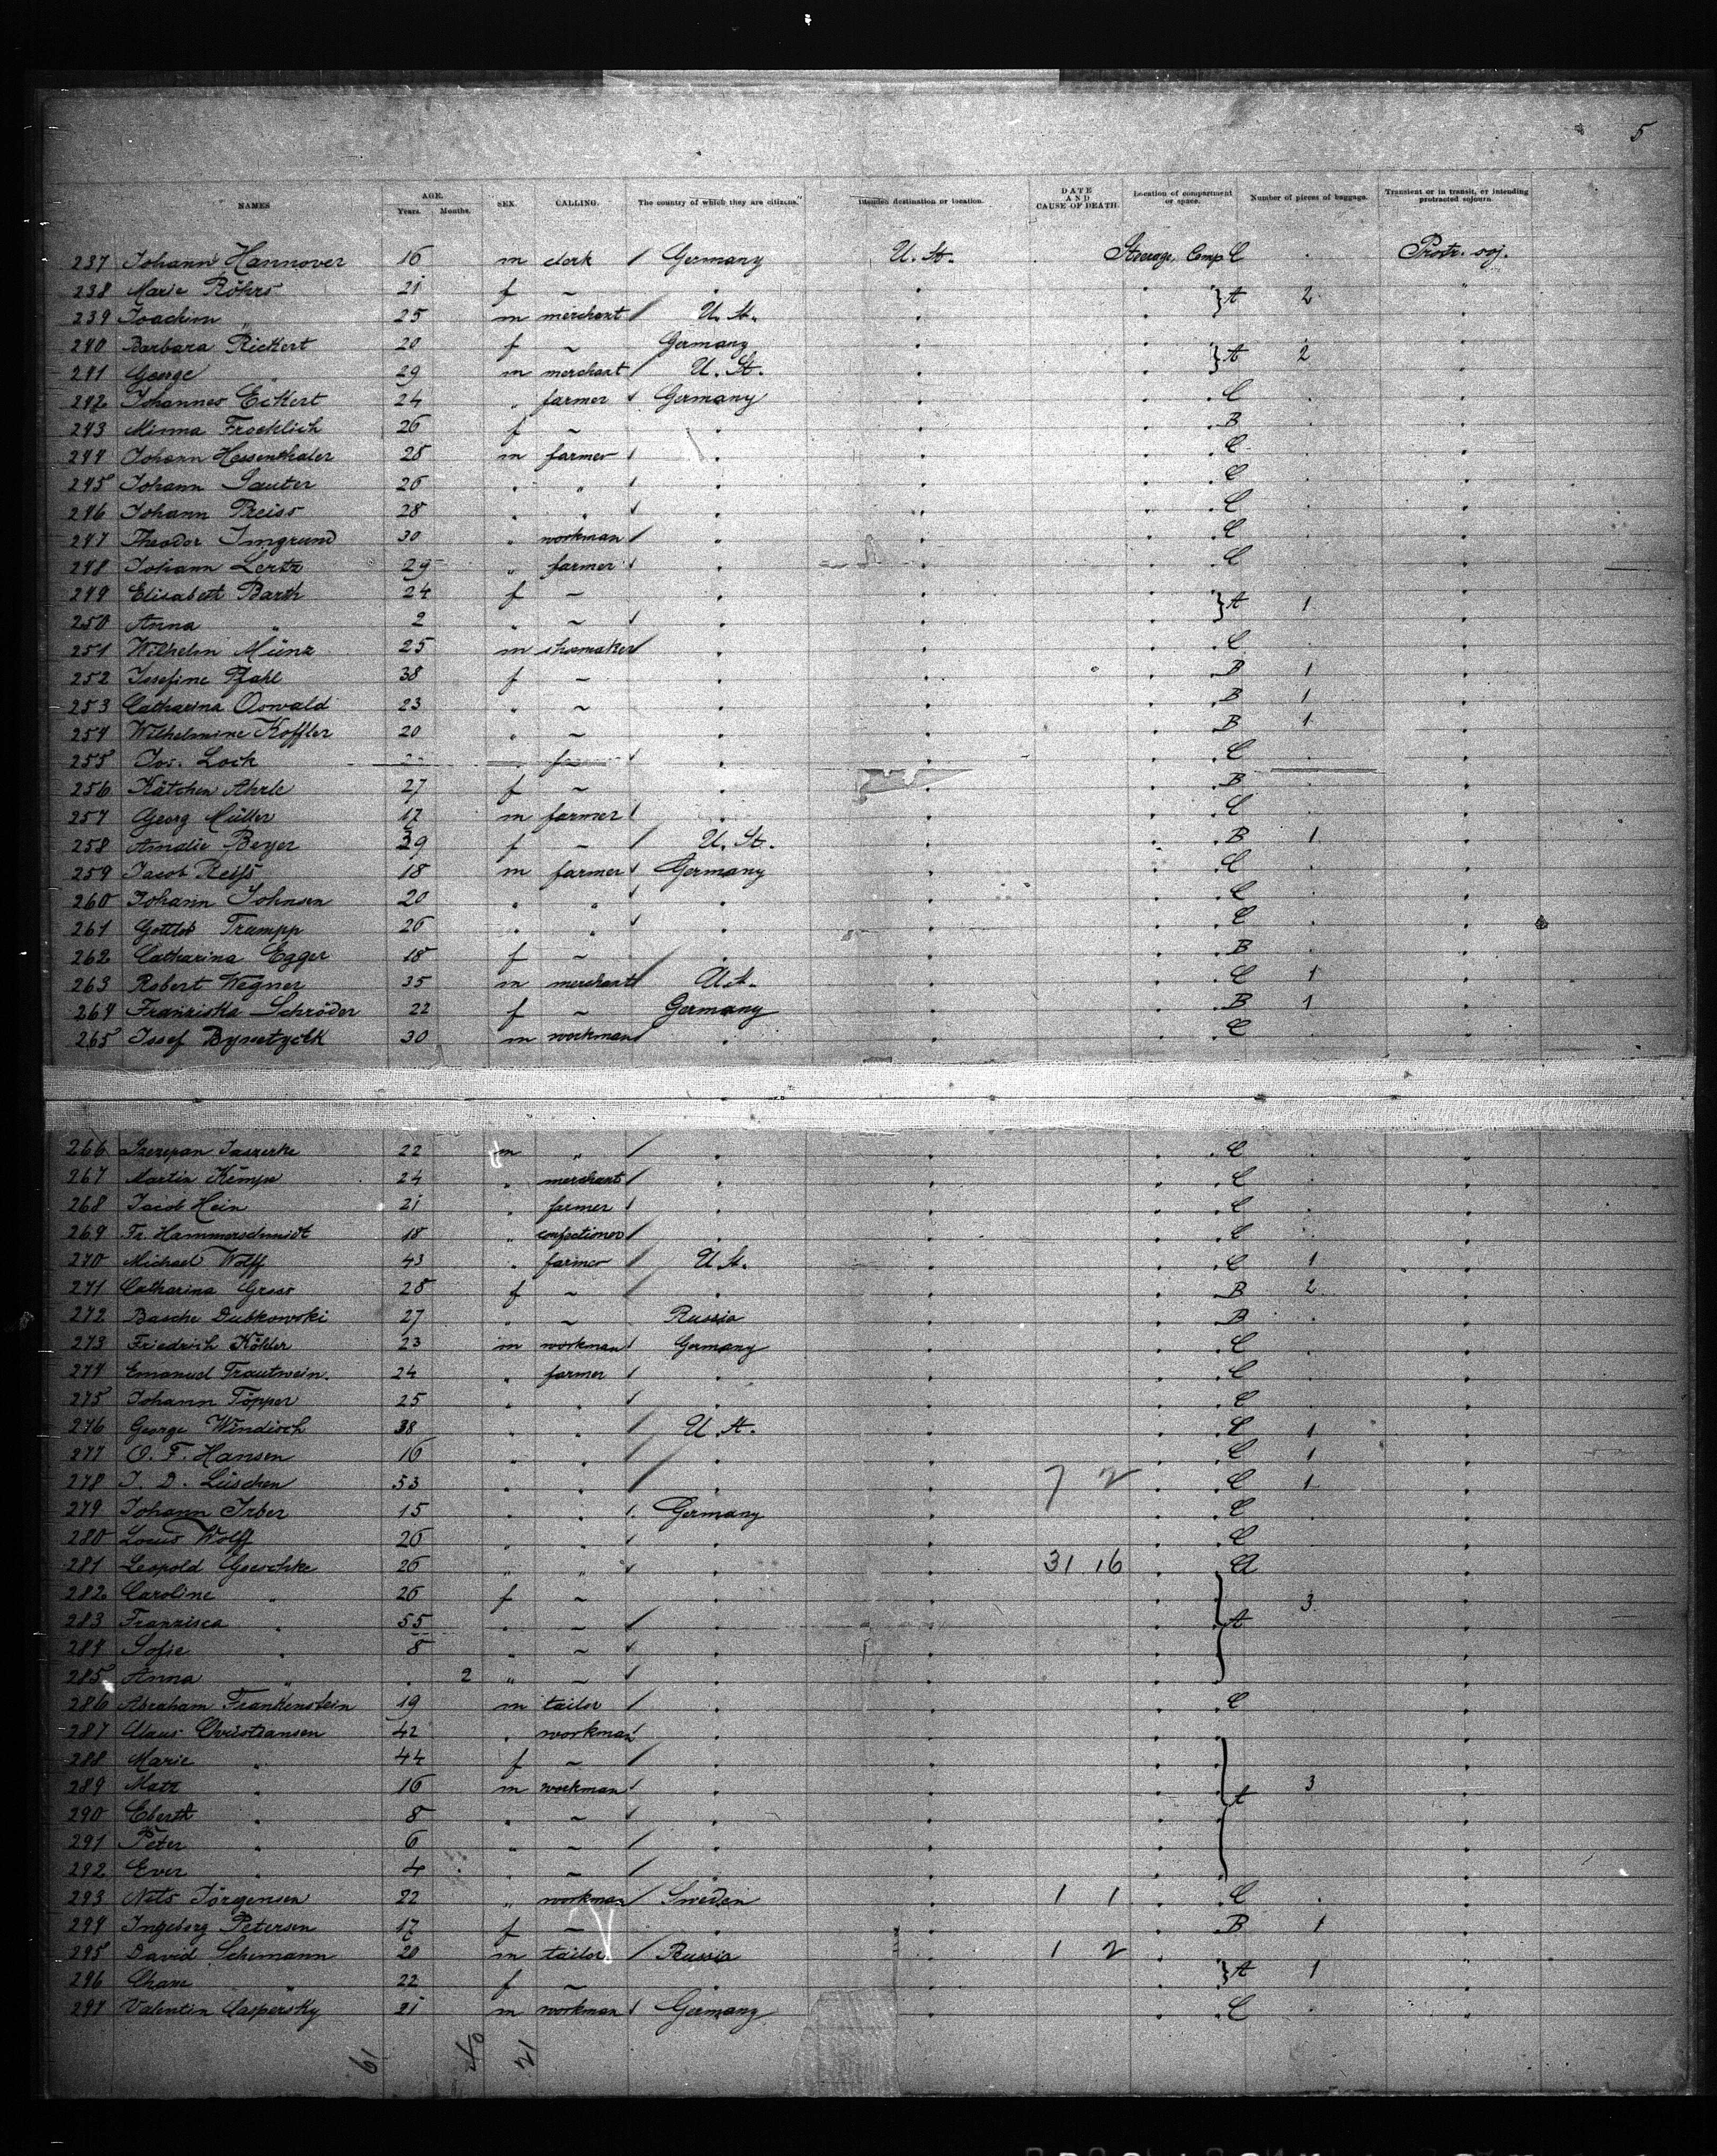 5
NAMES AGE. Years. Months. SEX. CALLING. The country of which they are citizens. Intended destination or location. DATE AND CAUSE OF DEATH. Location of compartment or space. Number of pieces of baggage. Transient or in transit, or intending protracted sojourn.
237 Johann Hannover 16 m clerk / Germany U. St. Steerage, Comp. C . Protr. soj.
238 Marie Röhrs 21 f ~ . . . } A 2 "
239 Joachim " 25 m merchant / U. St. . . .
240 Barbara Rickert 20 f ~ Germany . . } A 2 .
241 George " 29 m merchant / U. St. . . .
242 Johannes Eckert 24 " farmer / Germany . . C . .
243 Minna Froehlich 26 f ~ . . . B . .
244 Johann Hessenthaler 28 m farmer / . . . C . .
245 Johann Sauter 26 " " / . . . C . .
246 Johann Preiss 28 " " / . . . C . .
247 Theodor Imgrund 30 " workman / . . . C . .
248 Johann Lertz 29 " farmer / . . . C . .
249 Elisabeth Barth 24 f ~ . . . } A 1 .
250 Anna " 2 " ~ / . . . .
251 Wilhelm Münz 25 m shomaker / . . . C . .
252 Josefine Pfahl 38 f ~ . . . B 1 .
253 Catharina Oswald 23 " ~ . . . B 1 .
254 Wilhelmine Koffler 20 " ~ . . . B 1 .
255 Jos. Loch / . . . C . .
256 Kätchen Ahrle 27 f ~ . . . B . .
257 Georg Müller 17 m farmer / . . . C . .
258 Amalie Beyer 39 f ~ / U. St. . . B 1 .
259 Jacob Reiss 18 m farmer / Germany . . C . .
260 Johann Johnsen 20 " " / . . . C . .
261 Gottlob Trumpp 26 " " / . . . C . .
262 Catharina Egger 18 f ~ . . . B . .
263 Robert Wegner 35 m merchant / U. St. . . C 1 .
264 Franziska Schröder 22 f ~ Germany . . B 1 .
265 Josef 30 m workman / . . . C . .
266 22 m " / . . . C . .
267 Martin Kempe 24 " merchant / . . . C . .
268 Jacob Hein 21 " farmer / . . . C . .
269 Fr. Hammerschmidt 18 " confectioner / . . . C . .
270 Michael Wolff 43 " farmer / U. St. . . C 1 .
271 Catharina Gross 28 f ~ / . . . B 2 .
272 Basche Dubkowski 27 " ~ Russia . . B . .
273 Friedrich Köhler 23 m workman / Germany . . C . .
274 Emanuel Trautwein 24 " farmer / . . . C . .
275 Johann Töpper 25 " " / . . . C . .
276 George Windisch 38 " " / U. St. . . C 1 .
277 O. F. Hansen 16 " " / . . . C 1 .
278 J. D. Lüschen 53 " " / . . 7 2 . C 1 .
279 Johann Irber 15 " " / Germany . . C . .
280 Louis Wolff 26 " " / . . . C . .
281 Leopold 26 " " / . . 31 16 . A .
282 Caroline " 26 f ~ . . . } 3 .
283 Franzisca " 55 " ~ / . . . A .
284 Sofie " 8 " ~ . . . .
285 Anna " . 2 " ~ / . . . .
286 Abraham Frankenstein 19 m tailor / . . . C .
287 Claus Christiansen 42 " workman / . . . .
288 Marie " 44 f ~ / . . . } .
289 Matz " 16 m workman / . . . A 3 .
290 Eberth " 8 " ~ / . . . .
291 Peter " 6 " ~ / . . . .
292 Ever " 4 " ~ / . . . .
293 Nels Jörgensen 22 " workman / Sweden . 1 1 . C . .
294 Ingeborg Petersen 17 f ~ . . . B 1 .
295 David Schimann 20 m tailor / Russia . 1 2 . } A 1 .
296 Chane " 22 f ~ . . . .
297 Valentin Caspersky 21 m workman / Germany . . C . "
61 40 21